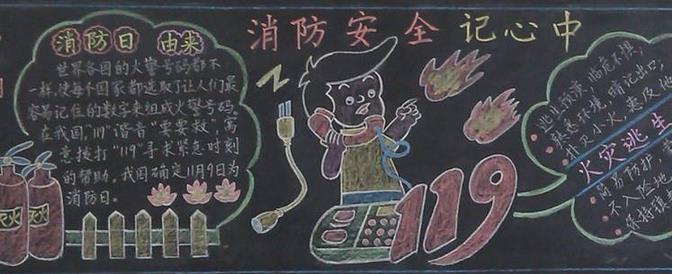 消防安全记心中
消防日 由来
世界各国的火警号码都不
一样,使每个国家都选取了让人们最
容易记住的数字来组成火警号码,
在我国,"119"谐音"要要救",寓
意拨打"119"寻求紧急时刻
的帮助。我国确定11月9日为
消防日。
灭火
灭火
119
逃生预演,临危不惧
熟悉环境,暗记出口
扑灭小火,惠及他
火灾逃生
简易防护,
不入险地
保持镇